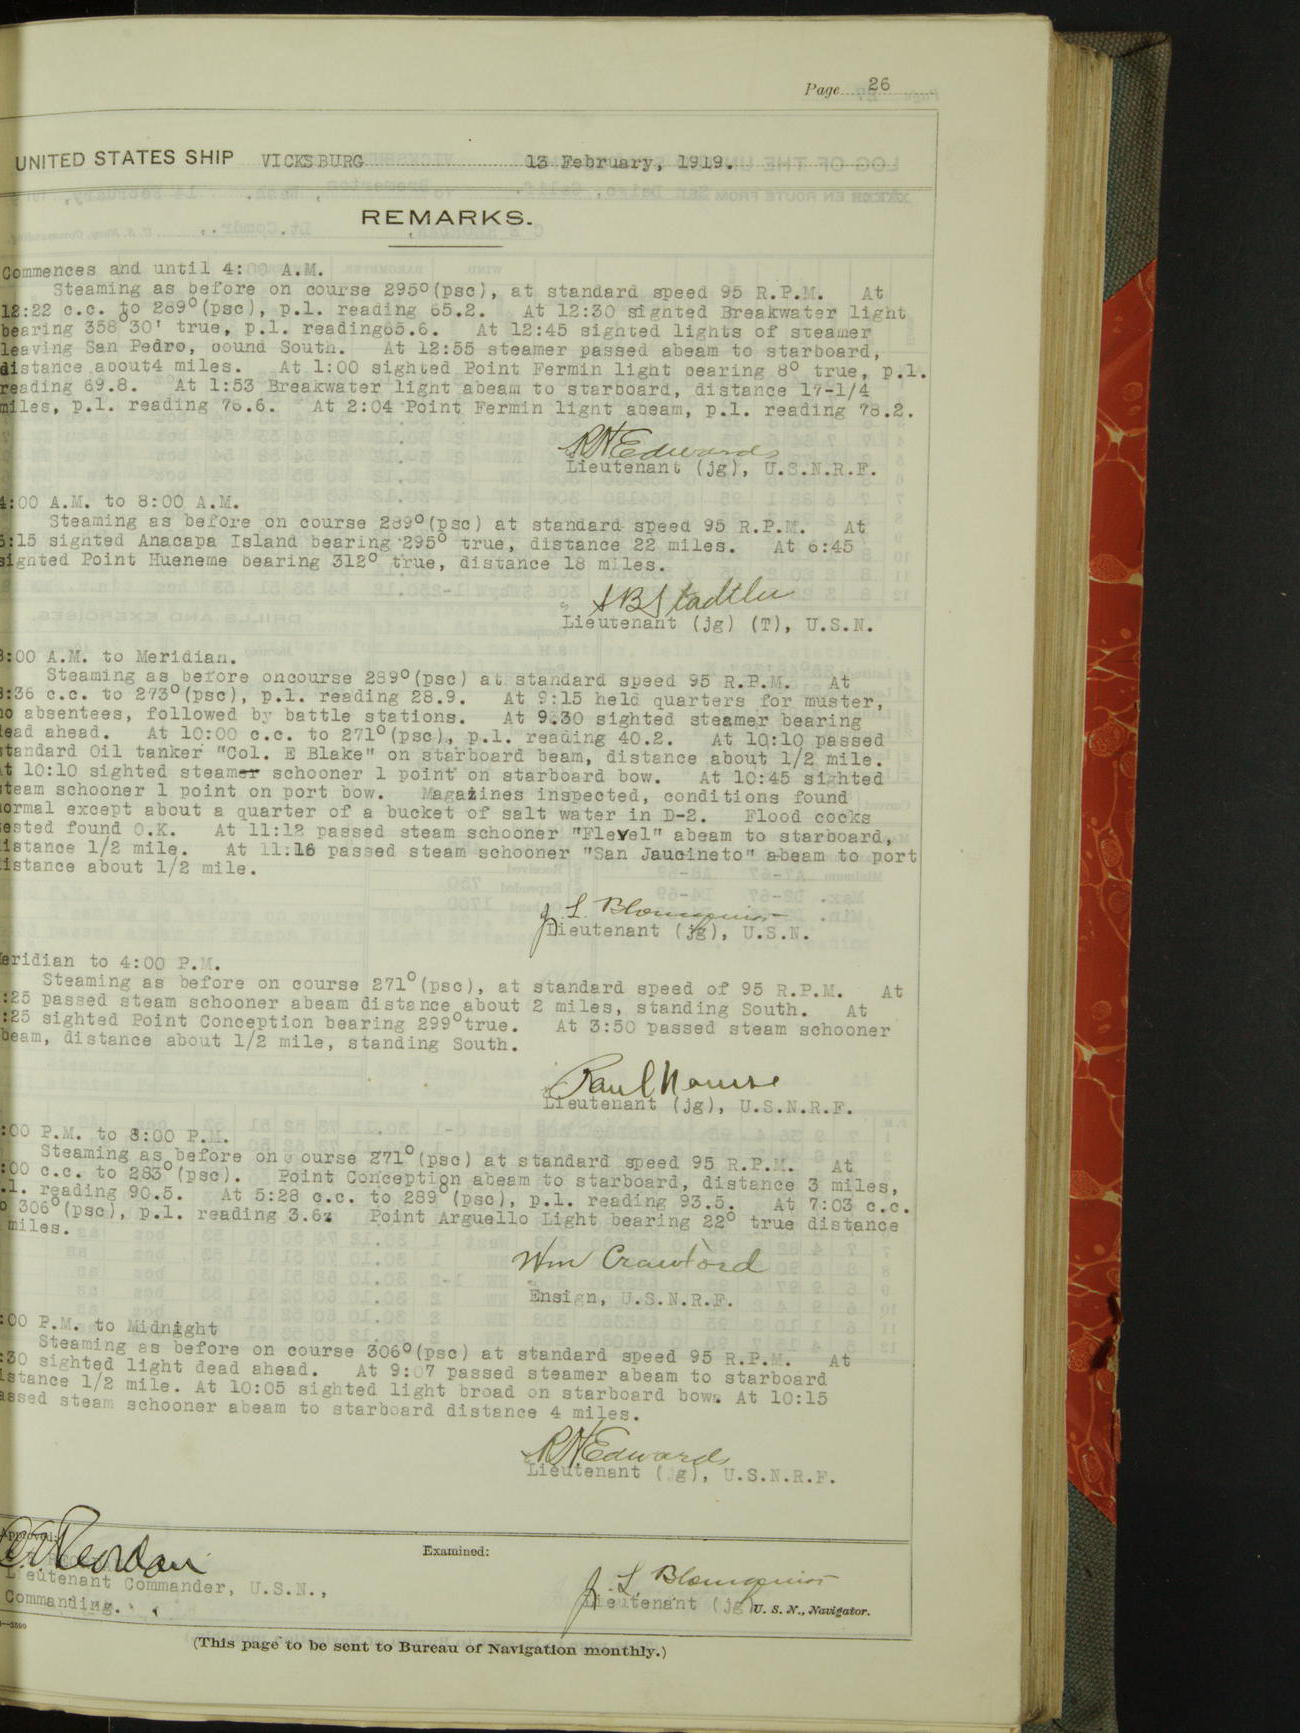 Page 26
UNITED STATES SHIP VICKSBURG 13 February, 1919.
REMARKS.
Commences and until 4:00 A.M.
Steaming as before on course 295°(psc), at standard speed 95 R.P.M. At
12:22 c.c. to 289°(psc), p.l. reading 65.2. At 12:30 sighted Breakwater light
bearing 358°30' true, p.l. reading65.6. At 12:45 sighted lights of steamer
leaving San Pedro, bound South. At 12:55 steamer passed abeam to starboard,
distance about4 miles. At 1:00 sighted Point Fermin light bearing 8° true, p.l.
reading 69.8. At 1:53 Breakwater light abeam to starboard, distance 17-1/4
miles, p.l. reading 76.6. At 2:04 Point Fermin light abeam, p.l. reading 78.2.
RH Edwards
Lieutenant (jg), U.S.N.R.F.
4:00 A.M. to 8:00 A.M.
Steaming as before on course 289°(psc) at standard speed 95 R.P.M. At
:15 sighted Anacapa Island bearing 295° true, distance 22 miles. At 6:45
sighted Point Hueneme bearing 312° true, distance 18 miles.
Lieutenant (jg) (T), U.S.N.
8:00 A.M. to Meridian.
Steaming as before oncourse 289°(psc) at standard speed 95 R.P.M. At
:36 c.c. to 273°(psc), p.l. reading 28.9. At 9:15 held quarters for muster,
no absentees, followed by battle stations. At 9.30 sighted steamer bearing
dead ahead. At 10:00 c.c. to 271°(psc), p.l. reading 40.2. At 10:10 passed
standard Oil tanker "Col. E Blake" on starboard beam, distance about 1/2 mile.
At 10:10 sighted steamer schooner 1 point on starboard bow. At 10:45 sighted
steam schooner 1 point on port bow. Magazines inspected, conditions found
normal except about a quarter of a bucket of salt water in D-2. Flood cocks
tested found O.K. At 11:12 passed steam schooner "Flevel" abeam to starboard,
distance 1/2 mile. At 11:16 passed steam schooner "San Jaucineto" abeam to port
distance about 1/2 mile.
J. L. Blomquist
Lieutenant (jg), U.S.N.
Meridian to 4:00 P.M.
Steaming as before on course 271°(psc), at standard speed of 95 R.P.M. At
:25 passed steam schooner abeam distance about 2 miles, standing South. At
:25 sighted Point Conception bearing 299°true. At 3:50 passed steam schooner
abeam, distance about 1/2 mile, standing South.
Lieutenant (jg), U.S.N.R.F.
:00 P.M. to 8:00 P.M.
Steaming as before on course 271°(psc) at standard speed 95 R.P.M. At
:00 c.c. to 283°(psc). Point Conception abeam to starboard, distance 3 miles,
.l. reading 90.5. At 5:28 c.c. to 289°(psc), p.l. reading 93.5. At 7:03 c.c.
o 306°(psc), p.l. reading 3.6 Point Arguello Light bearing 22° true distance
miles.
Wm Crawford
Ensign, U.S.N.R.F.
:00 P.M. to Midnight
Steaming as before on course 306°(psc) at standard speed 95 R.P.M. At
:30 sighted light dead ahead. At 9:07 passed steamer abeam to starboard
distance 1/2 mile. At 10:05 sighted light broad on starboard bow. At 10:15
passed steam schooner abeam to starboard distance 4 miles.
RH Edwards
Lieutenant (jg), U.S.N.R.F.
Approved:
Lieutenant Commander, U.S.N.,
Commanding.
Examined:
J. L. Blomquist
Lieutenant (jg) U. S. N., Navigator.
(This page to be sent to Bureau of Navigation monthly.)